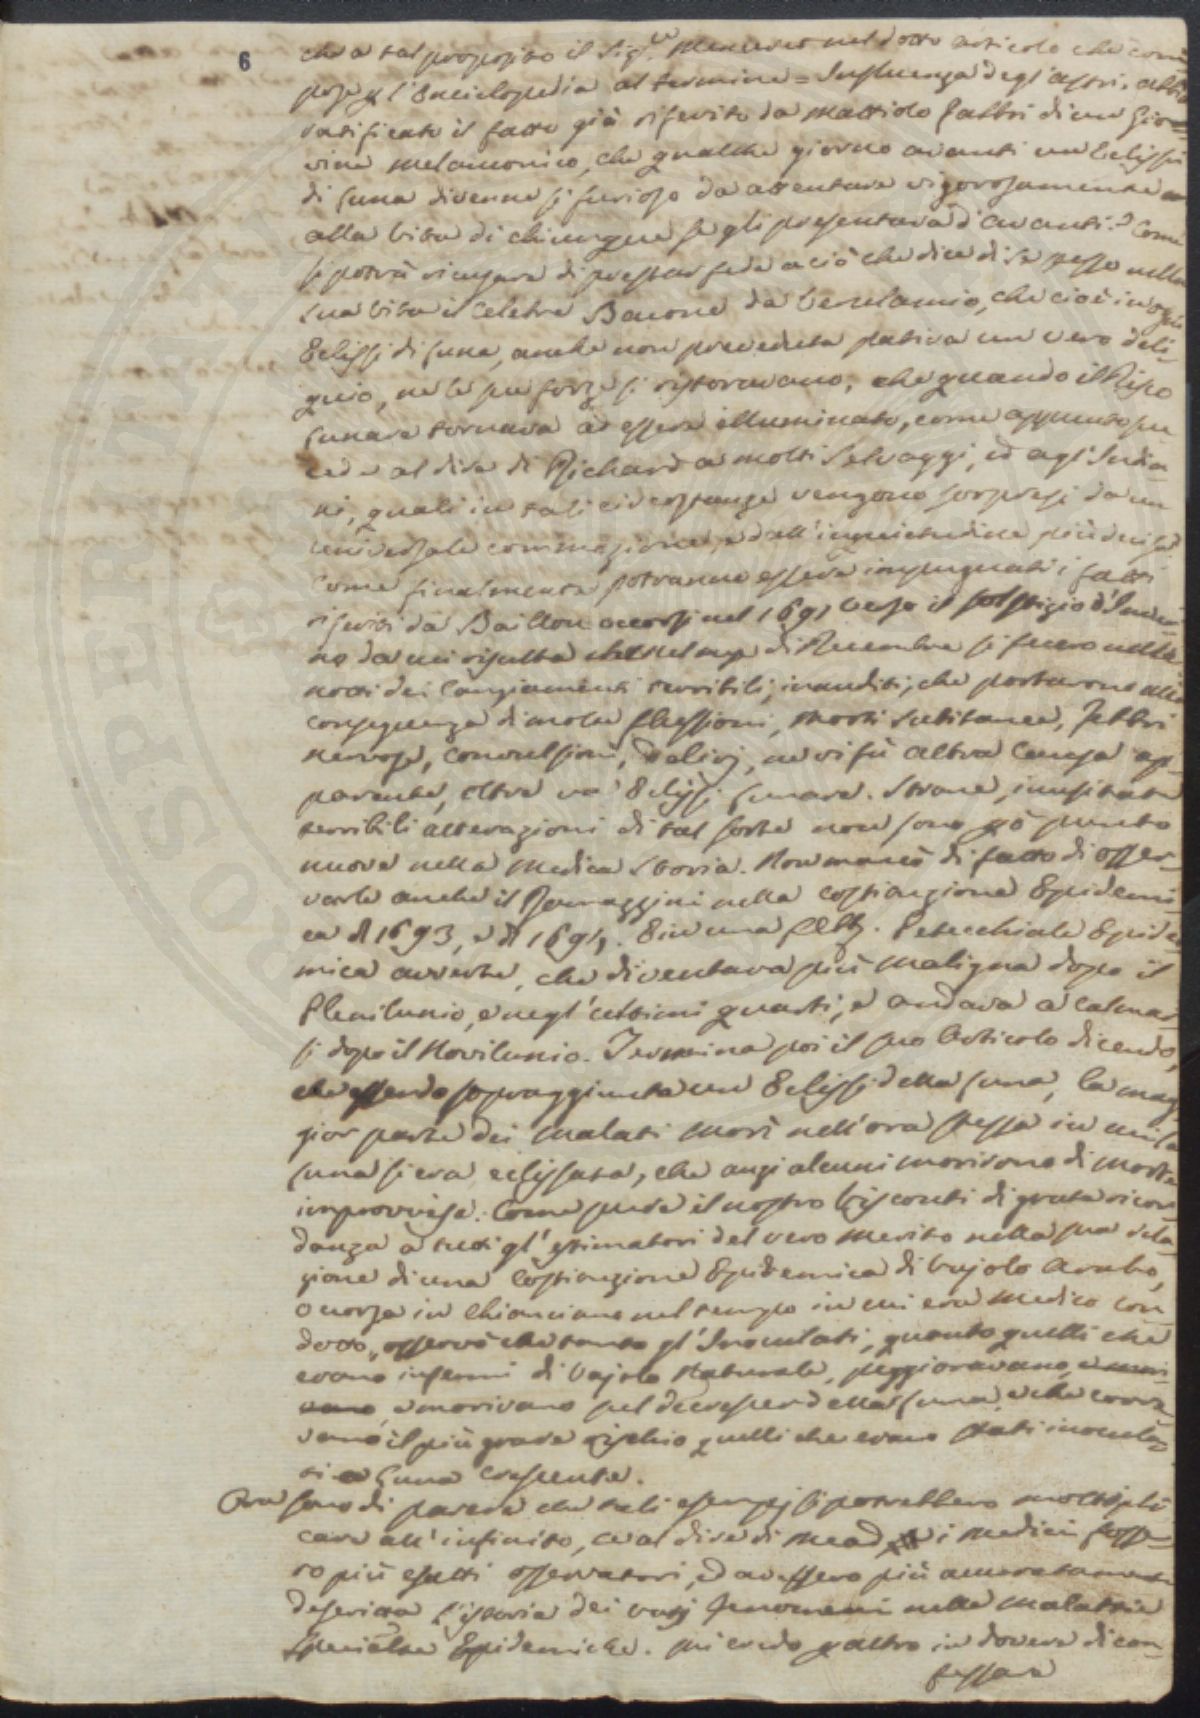 6
che a tal proposito il Sig.re Menuret nel dotto articolo che com-
pose p l'Enciclopedia al termine = Influenza degl'astri, abbia
ratificato il fatto già riferito da Mattiolo Fabbri di un Gio-
vine melanconico, che qualche giorno avanti un Eclissi
di Luna divenne sì furioso da attentare vigorosamente
alla vita di chiunque se gli presentava d'avanti? Come
si potrà ricusare di prestar fede a ciò che dice di se stesso nella
sua vita il celebre Bacone da Verulamio, che cioè in ogni
Eclissi di Luna, anche non preveduta pativa un vero deli-
quio, ne le sue forze si ristoravano, che quando il Disco
Lunare tornava ad essere illuminato, come appunto suc-
cede al dire di Richard a molti Selvaggi, ed agl'India-
ni, quali in tali circostanze vengono sorpresi da un
universale commozione, e dall'inquietudine più decisa
Come finalmente potranno essere impugnati i fatti
riferiti da Baillou occorsi nel 1691 verso il solstizio d'Inver-
no da cui risulta che nel mese di Decembre si fecero nelle
notti dei Cangiamenti terribili, inauditi, che portarono alla
conseguenza di molte flussioni, Morti Subitanee, Febbri
nervose, convulsioni, Delirj, ne vi fù altra Causa ap-
parente, oltre un Eclissi Lunare. Strane, inusitate
terribili alterazioni di tal sorte non sono pò punto
nuove nella Medica Storia. Non mancò di fatto di osser-
varle anche il Ramazzini nella costituzione Epidemi-
ca dl 1693, e dl 1694. E in una febb. Petecchiale Epide-
mica avverte, che diventava più maligna dopo il
Plenilunio, e negl'ultimi quarti, e andava a calmar-
si dopo il Novilunio. Termina poi il suo Articolo dicendo,
che essendo sopraggiunta un Eclissi della Luna, la mag-
gior parte dei malati morì nell'ora stessa in cui la
Luna si era eclissata, che anzi alcuni morirono di morte
improvvisa. Come pure il nostro Visconti di grata ricor-
danza a tutti gl'estimatori del vero merito nella sua rela-
zione di una Costituzione Epidemica di Vajolo Arabo,
occorsa in Chianciano nel tempo in cui era Medico Con-
dotto, osservò che tanto gl'Inoculati, quanto quelli che
erano infermi di Vajolo Naturale, peggioravano,
e morivano sul decrescer della Luna, e che corre-
vano il più grave rischio quelli che erano stati inocula-
ti a Luna crescente.
Ora sono di parere che tali esempj si potrebbero moltipli-
care all'infinito, se al dire di Mead i Medici fosse-
ro più esatti osservatori, ed avessero più accuratamente
descritta l'istoria dei varj fenomeni nelle Malattie
specialme Epidemiche. Mi credo p altro in dovere di con-
fessare